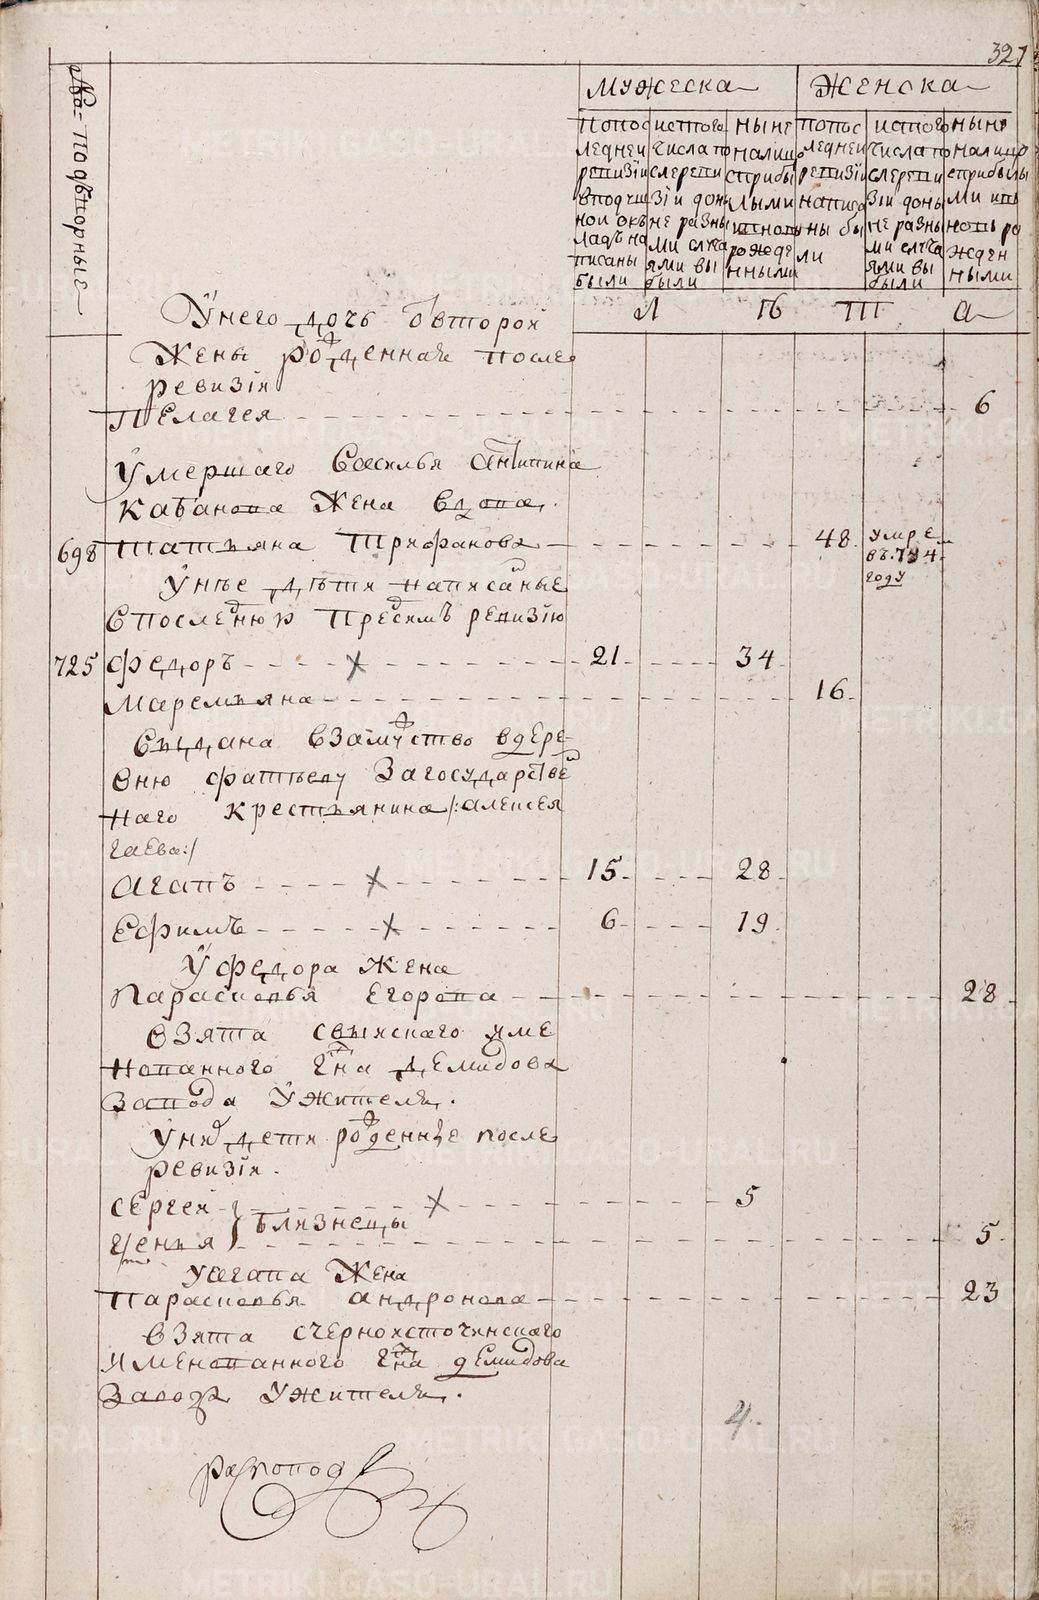 327
№а подворные
мужеска
женска
попос
ледней
ревизіи
вподуш
ной окъ
ладъ на
писаны
были
истого
числа по
слереви
зіи дон
не разны
ми случа
ями вы
были
ныне
налицо
сприбы
лыми
рожде
нными
попос
ледней
ревизіи
написа
ны бы
ли
истого
числа по
слереви
зіи доны
не разны
ми случа
ями вы
были
ныне
налицо
сприбылы
ми
новоро
жден
ными
л
іб
ііі
а
Унего дочь отвторой
жены рожденная после
ревизіи
Пелагея 6
Умершаго Василья Антипина
Кабанова жена вдова
698 Татьяна Трифанова 48 умре въ. 794. году
Унее дети написаные
Спослѣднюю Предъ симъ ревизію
725 Федоръ 21 34
Маремьяна 16
Выдана взамужство вдере
вню фатееву Загосударствен
наго крестьянина /: алексея
гаева :/
Агапъ 15 28
Ефимъ 6 19
У федора жена
Парасковья Егорова 28
Взята свыискаго име
нованного гдна демидова
завода Ужителя.
Унихъ дети рожденные после
ревизіи.
Сергей 5
близнецы
5
Уагапа жена
Парасковья андронова 23
взята счерноисточинскаго
именованного гдна демидова
завода Ужителя.
4.